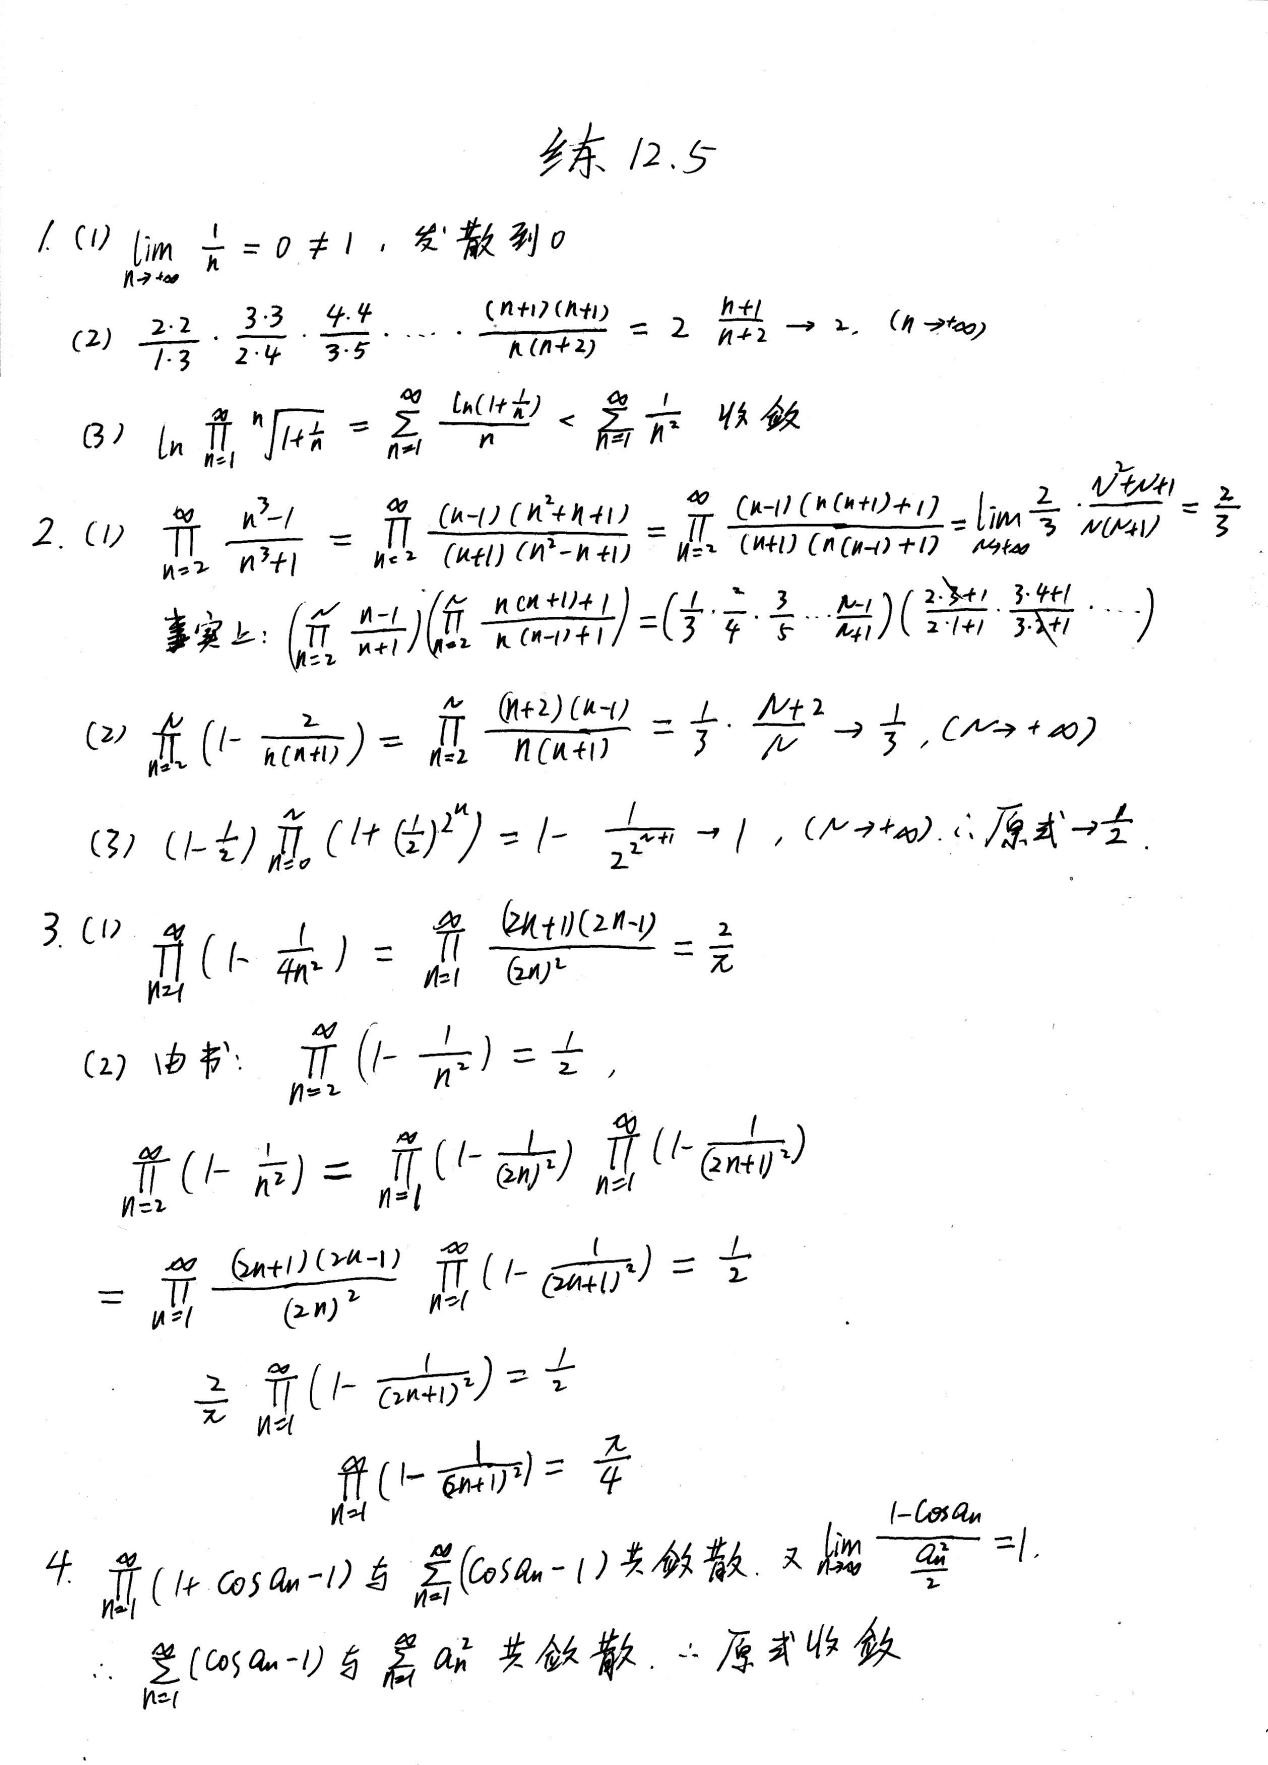 练 12.5
1. (1) lim_{n→+∞} 1/n = 0 ≠ 1, 发散到0
(2) (2·2)/(1·3) · (3·3)/(2·4) · (4·4)/(3·5) · ···· · ((n+1)(n+1))/(n(n+2)) = 2 (n+1)/(n+2) → 2, (n→+∞)
(3) ln ∏_{n=1}^{∞} ⁿ√(1+1/n) = ∑_{n=1}^{∞} ln(1+1/n)/n < ∑_{n=1}^{∞} 1/n² 收敛
2. (1) ∏_{n=2}^{∞} (n³-1)/(n³+1) = ∏_{n=2}^{∞} ((n-1)(n²+n+1))/((n+1)(n²-n+1)) = ∏_{n=2}^{∞} ((n-1)(n(n+1)+1))/((n+1)(n(n-1)+1)) = lim_{N→+∞} 2/3 · (N²+N+1)/(N(N+1)) = 2/3
事实上: (∏_{n=2}^{N} (n-1)/(n+1)) (∏_{n=2}^{N} (n(n+1)+1)/(n(n-1)+1)) = (1/3 · 2/4 · 3/5 ··· (N-1)/(N+1)) ((2·3+1)/(2·1+1) · (3·4+1)/(3·2+1) · ····)
(2) ∏_{n=2}^{N} (1 - 2/(n(n+1))) = ∏_{n=2}^{N} ((n+2)(n-1))/(n(n+1)) = 1/3 · (N+2)/N → 1/3, (N→+∞)
(3) (1-1/2) ∏_{n=0}^{N} (1+(1/2)^{2^n}) = 1 - 1/2^{2^{N+1}} → 1, (N→+∞). ∴ 原式→1/2.
3. (1) ∏_{n=1}^{∞} (1 - 1/(4n²)) = ∏_{n=1}^{∞} ((2n+1)(2n-1))/(2n)² = 2/π
(2) 由书: ∏_{n=2}^{∞} (1 - 1/n²) = 1/2,
∏_{n=2}^{∞} (1 - 1/n²) = ∏_{n=1}^{∞} (1 - 1/(2n)²) ∏_{n=1}^{∞} (1 - 1/(2n+1)²)
= ∏_{n=1}^{∞} ((2n+1)(2n-1))/(2n)² ∏_{n=1}^{∞} (1 - 1/(2n+1)²) = 1/2
2/π ∏_{n=1}^{∞} (1 - 1/(2n+1)²) = 1/2
∏_{n=1}^{∞} (1 - 1/(2n+1)²) = π/4
4. ∏_{n=1}^{∞} (1+cos aₙ -1) 与 ∑_{n=1}^{∞} (cos aₙ -1) 共敛散. 又 lim_{n→∞} (1-cos aₙ)/(aₙ²/2) = 1.
∴ ∑_{n=1}^{∞} (cos aₙ -1) 与 ∑_{n=1}^{∞} aₙ² 共敛散. ∴ 原式收敛